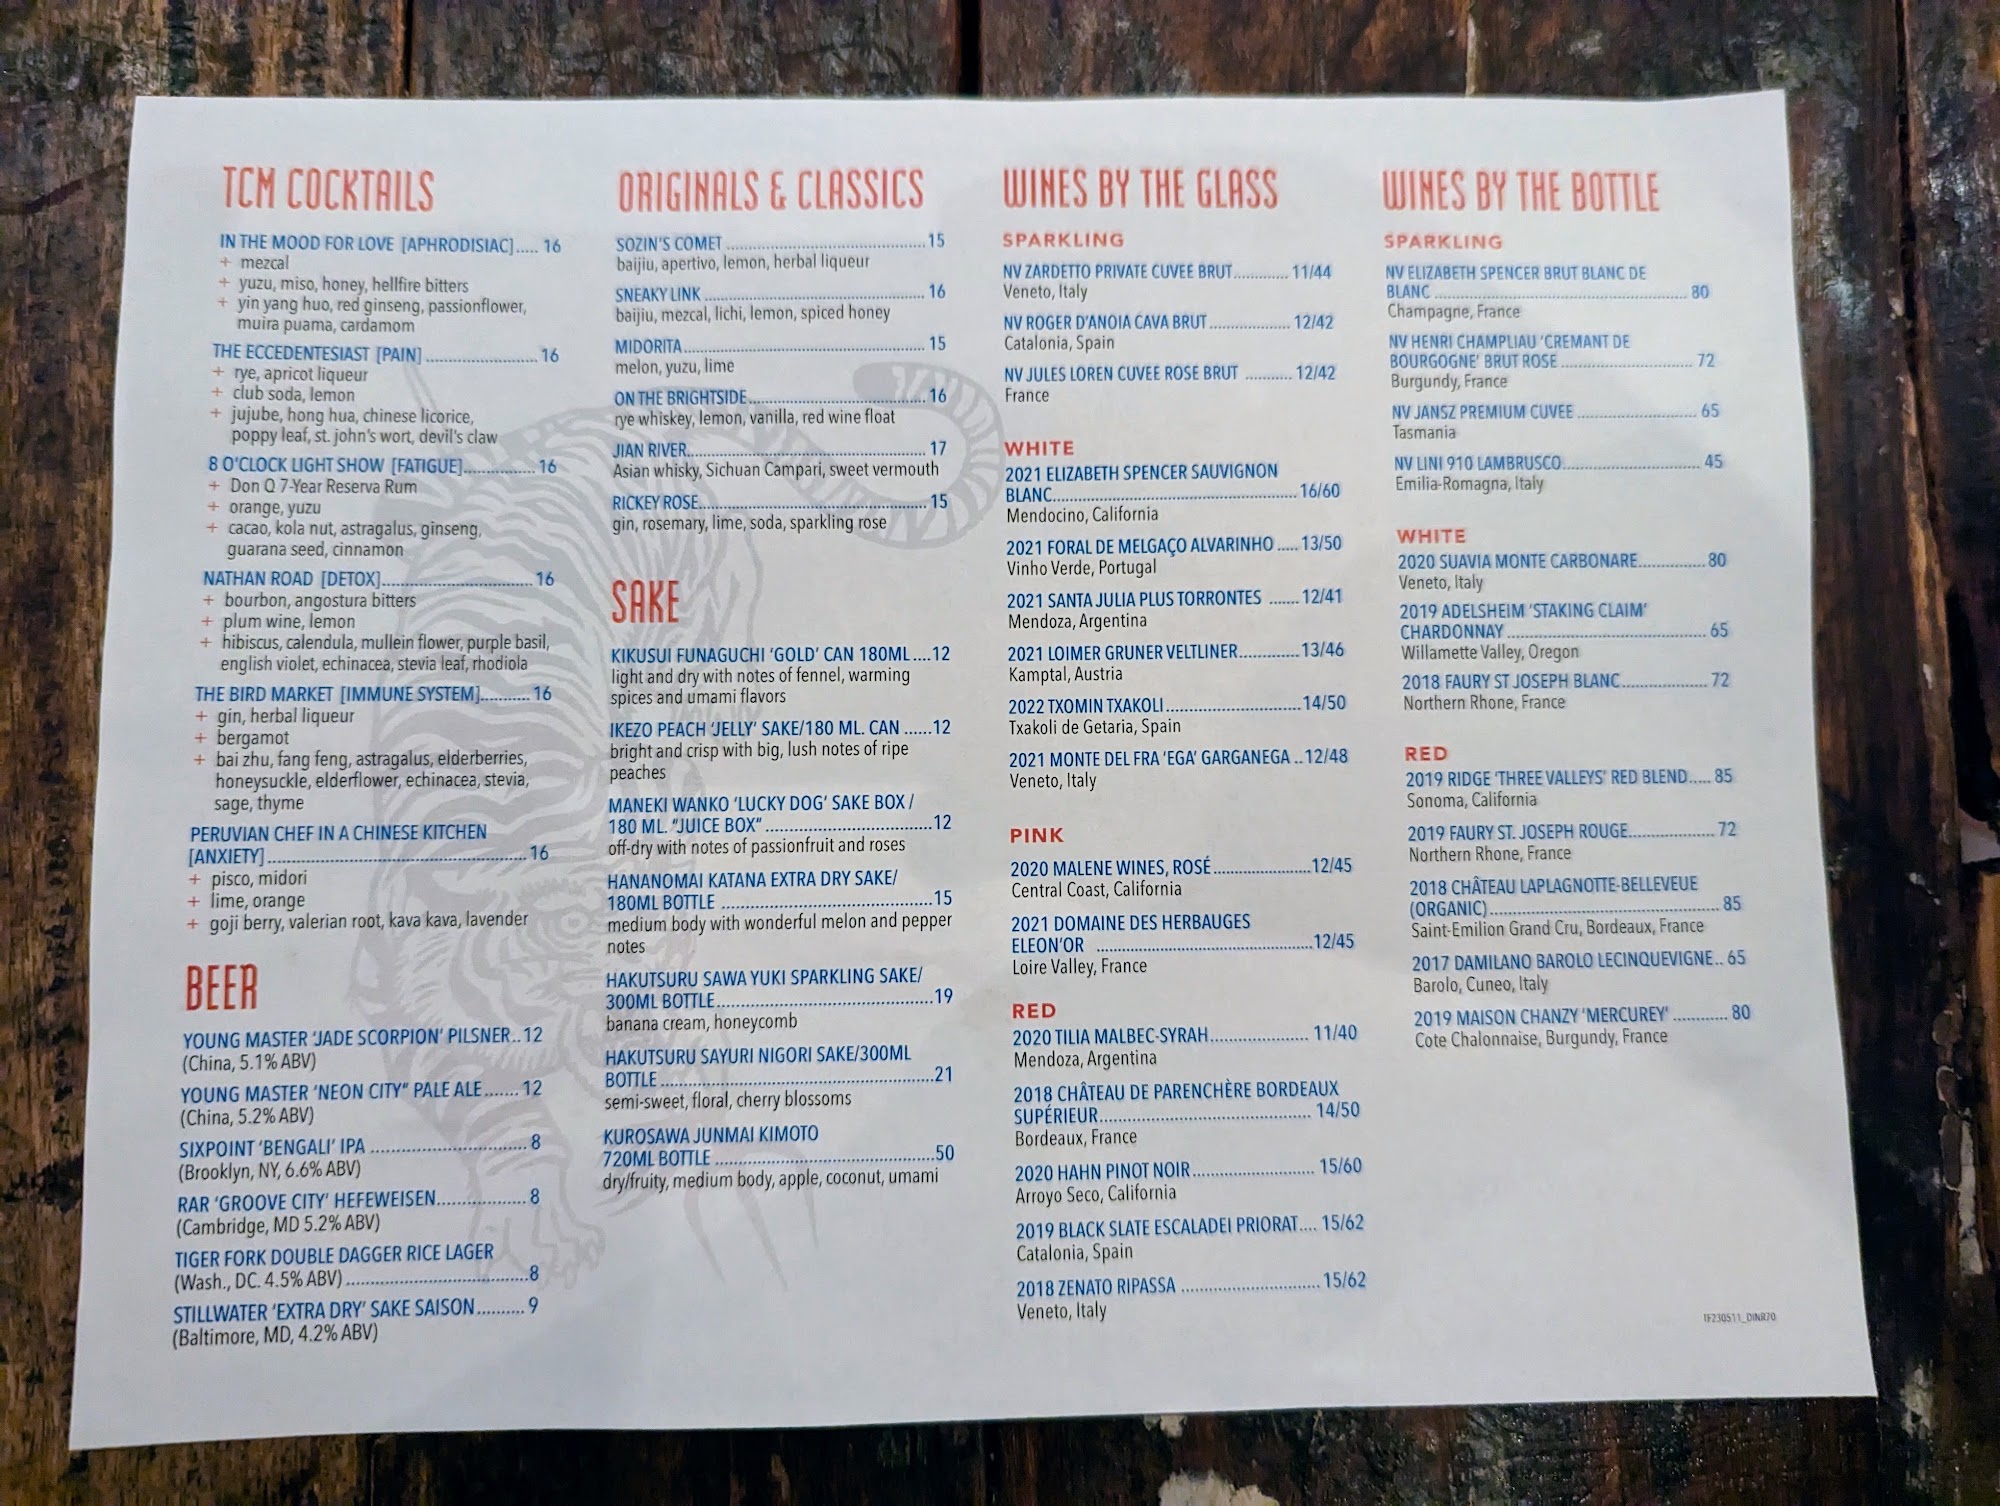 TCM COCKTAILS
IN THE MOOD FOR LOVE [APHRODISIAC]..... 16
+ mezcal
+ yuzu, miso, honey, hellfire bitters
+ yin yang huo, red ginseng, passionflower,
muira puama, cardamom
THE ECCEDENTESIAST [PAIN] ........................ 16
+ rye, apricot liqueur
+ club soda, lemon
+ jujube, hong hua, chinese licorice,
poppy leaf, st. john's wort, devil's claw
8 O'CLOCK LIGHT SHOW [FATIGUE]............... 16
+ Don Q 7-Year Reserva Rum
+ orange, yuzu
+ cacao, kola nut, astragalus, ginseng,
guarana seed, cinnamon
NATHAN ROAD [DETOX]................................ 16
+ bourbon, angostura bitters
+ plum wine, lemon
+ hibiscus, calendula, mullein flower, purple basil,
english violet, echinacea, stevia leaf, rhodiola
THE BIRD MARKET [IMMUNE SYSTEM].......... 16
+ gin, herbal liqueur
+ bergamot
+ bai zhu, fang feng, astragalus, elderberries,
honeysuckle, elderflower, echinacea, stevia,
sage, thyme
PERUVIAN CHEF IN A CHINESE KITCHEN
[ANXIETY] ...................................................... 16
+ pisco, midori
+ lime, orange
+ goji berry, valerian root, kava kava, lavender
BEER
YOUNG MASTER 'JADE SCORPION' PILSNER.. 12
(China, 5.1% ABV)
YOUNG MASTER 'NEON CITY" PALE ALE....... 12
(China, 5.2% ABV)
SIXPOINT 'BENGALI' IPA ................................. 8
(Brooklyn, NY, 6.6% ABV)
RAR 'GROOVE CITY' HEFEWEISEN.................. 8
(Cambridge, MD 5.2% ABV)
TIGER FORK DOUBLE DAGGER RICE LAGER
(Wash., DC. 4.5% ABV) .......................................8
STILLWATER 'EXTRA DRY' SAKE SAISON.......... 9
(Baltimore, MD, 4.2% ABV)
ORIGINALS & CLASSICS
SOZIN'S COMET ...........................................15
baijiu, apertivo, lemon, herbal liqueur
SNEAKY LINK ............................................... 16
baijiu, mezcal, lichi, lemon, spiced honey
MIDORITA.................................................... 15
melon, yuzu, lime
ON THE BRIGHTSIDE...................................... 16
rye whiskey, lemon, vanilla, red wine float
JIAN RIVER................................................... 17
Asian whisky, Sichuan Campari, sweet vermouth
RICKEY ROSE................................................ 15
gin, rosemary, lime, soda, sparkling rose
SAKE
KIKUSUI FUNAGUCHI 'GOLD' CAN 180ML ....12
light and dry with notes of fennel, warming
spices and umami flavors
IKEZO PEACH 'JELLY' SAKE/180 ML. CAN ......12
bright and crisp with big, lush notes of ripe
peaches
MANEKI WANKO 'LUCKY DOG' SAKE BOX /
180 ML. "JUICE BOX" ....................................12
off-dry with notes of passionfruit and roses
HANANOMAI KATANA EXTRA DRY SAKE/
180ML BOTTLE .............................................15
medium body with wonderful melon and pepper
notes
HAKUTSURU SAWA YUKI SPARKLING SAKE/
300ML BOTTLE..............................................19
banana cream, honeycomb
HAKUTSURU SAYURI NIGORI SAKE/300ML
BOTTLE .........................................................21
semi-sweet, floral, cherry blossoms
KUROSAWA JUNMAI KIMOTO
720ML BOTTLE ..............................................50
dry/fruity, medium body, apple, coconut, umami
WINES BY THE GLASS
SPARKLING
NV ZARDETTO PRIVATE CUVEE BRUT............ 11/44
Veneto, Italy
NV ROGER D'ANOIA CAVA BRUT.................. 12/42
Catalonia, Spain
NV JULES LOREN CUVEE ROSE BRUT ........... 12/42
France
WHITE
2021 ELIZABETH SPENCER SAUVIGNON
BLANC..................................................... 16/60
Mendocino, California
2021 FORAL DE MELGAÇO ALVARINHO ..... 13/50
Vinho Verde, Portugal
2021 SANTA JULIA PLUS TORRONTES ....... 12/41
Mendoza, Argentina
2021 LOIMER GRUNER VELTLINER............. 13/46
Kamptal, Austria
2022 TXOMIN TXAKOLI.............................14/50
Txakoli de Getaria, Spain
2021 MONTE DEL FRA 'EGA' GARGANEGA ..12/48
Veneto, Italy
PINK
2020 MALENE WINES, ROSÉ.....................12/45
Central Coast, California
2021 DOMAINE DES HERBAUGES
ELEON'OR ..............................................12/45
Loire Valley, France
RED
2020 TILIA MALBEC-SYRAH..................... 11/40
Mendoza, Argentina
2018 CHÂTEAU DE PARENCHÈRE BORDEAUX
SUPÉRIEUR............................................. 14/50
Bordeaux, France
2020 HAHN PINOT NOIR.......................... 15/60
Arroyo Seco, California
2019 BLACK SLATE ESCALADEI PRIORAT.... 15/62
Catalonia, Spain
2018 ZENATO RIPASSA ............................. 15/62
Veneto, Italy
WINES BY THE BOTTLE
SPARKLING
NV ELIZABETH SPENCER BRUT BLANC DE
BLANC ....................................................... 80
Champagne, France
NV HENRI CHAMPLIAU 'CREMANT DE
BOURGOGNE' BRUT ROSE ............................ 72
Burgundy, France
NV JANSZ PREMIUM CUVEE .......................... 65
Tasmania
NV LINI 910 LAMBRUSCO............................. 45
Emilia-Romagna, Italy
WHITE
2020 SUAVIA MONTE CARBONARE............... 80
Veneto, Italy
2019 ADELSHEIM 'STAKING CLAIM'
CHARDONNAY ........................................... 65
Willamette Valley, Oregon
2018 FAURY ST JOSEPH BLANC................... 72
Northern Rhone, France
RED
2019 RIDGE 'THREE VALLEYS' RED BLEND..... 85
Sonoma, California
2019 FAURY ST. JOSEPH ROUGE................... 72
Northern Rhone, France
2018 CHÂTEAU LAPLAGNOTTE-BELLEVEUE
(ORGANIC)................................................. 85
Saint-Emilion Grand Cru, Bordeaux, France
2017 DAMILANO BAROLO LECINQUEVIGNE.. 65
Barolo, Cuneo, Italy
2019 MAISON CHANZY 'MERCUREY' ............ 80
Cote Chalonnaise, Burgundy, France
TF230511_DINR70